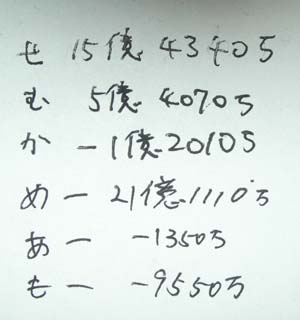 せ 15億 4340万
む 5億 4070万
か -1億 2010万
め - 21億 1110万
あ - -1350万
も - -9550万